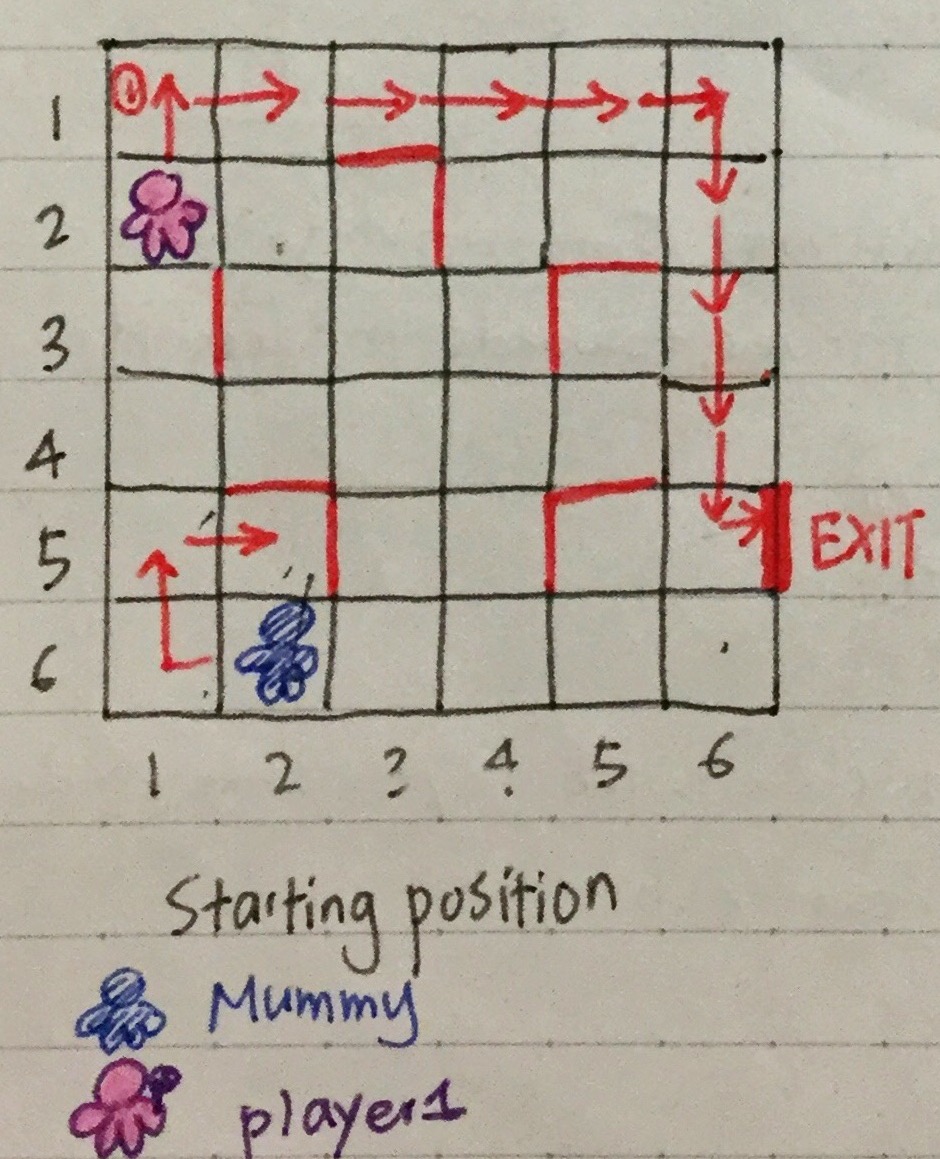 ①
1
2
3
4
5 EXIT
6
1 2 3 4 5 6
Starting position
Mummy
player1